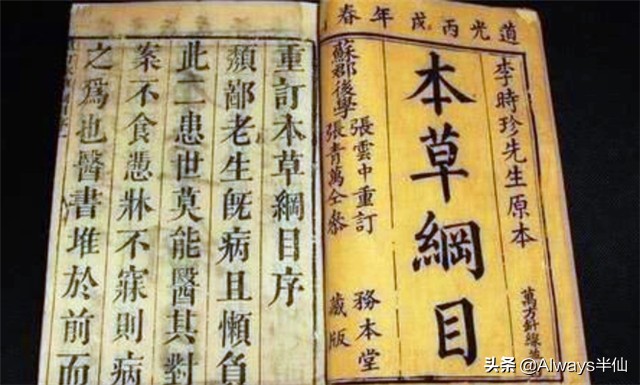 道光丙戌年春
李時珍先生原本
萬方針線
本草綱目
蘇郡後學
張雲中重訂
張青萬仝參
務本堂
藏版
重訂本草綱目序
老生旣病且懶負
此二患世莫能醫其對
案不食慿牀不寐則病
之爲也醫書堆於前而
头条 @Always半仙